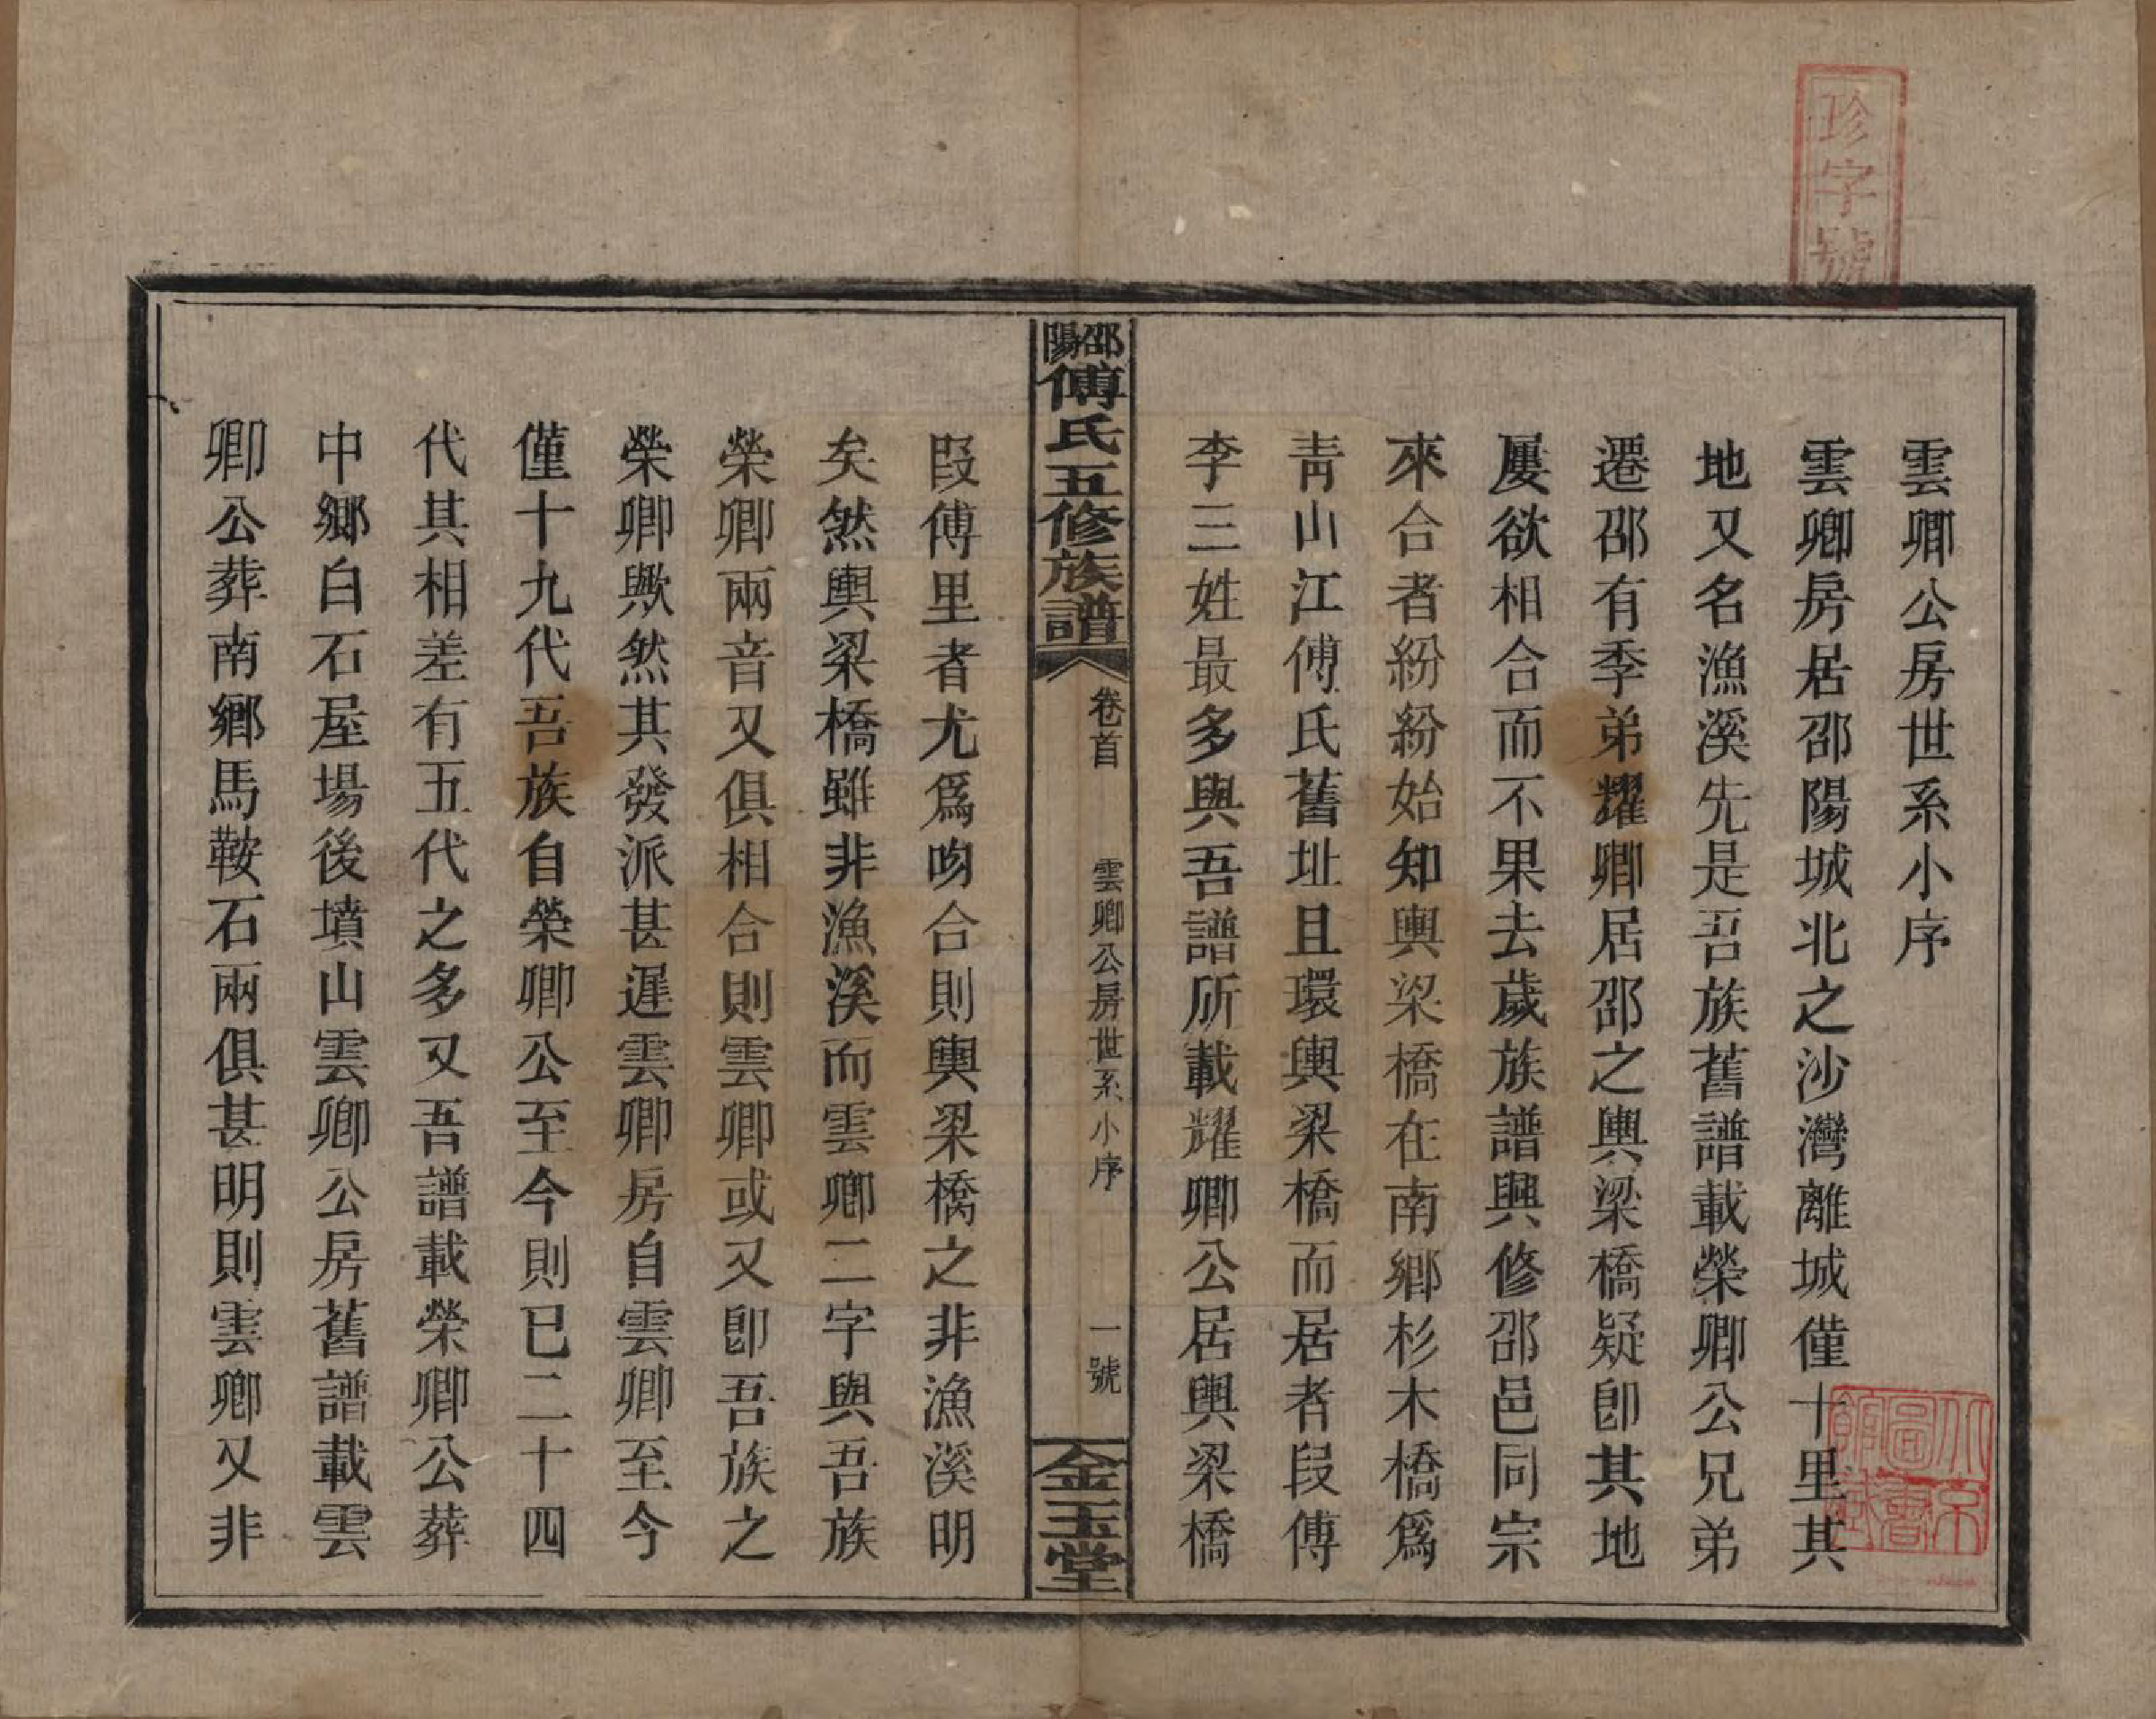 珍字號
雲卿公房世系小序
雲卿房居邵陽城北之沙灣離城僅十里其
地又名漁溪先是吾族舊譜載榮卿公兄弟
遷邵有季弟耀卿居邵之輿梁橋疑卽其地
屢欲相合而不果去歲族譜興修邵邑同宗
來合者紛紛始知輿梁橋在南鄉杉木橋爲
靑山江傅氏舊址且環輿梁橋而居者段傅
李三姓最多與吾譜所載耀卿公居輿梁橋
邵陽傅氏五修族譜
卷首
雲卿公房世系小序
一號
金玉堂
段傅里者尤爲吻合則輿梁橋之非漁溪明
矣然輿梁橋雖非漁溪而雲卿二字與吾族
榮卿兩音又俱相合則雲卿或又卽吾族之
榮卿歟然其發派甚遲雲卿房自雲卿至今
僅十九代吾族自榮卿公至今則已二十四
代其相差有五代之多又吾譜載榮卿公葬
中鄉白石屋場後墳山雲卿公房舊譜載雲
卿公葬南鄉馬鞍石兩俱甚明則雲卿又非
北京圖書館藏